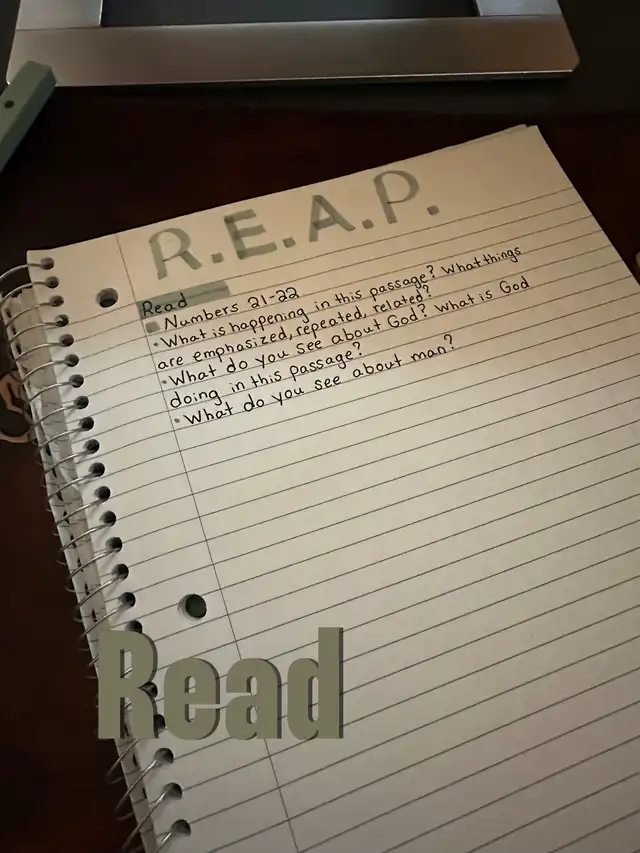 R.E.A.P.
Read
Numbers 21-22
• What is happening in this passage? What things
are emphasized, repeated, related?
• What do you see about God? What is God
doing in this passage?
• What do you see about man?
Read